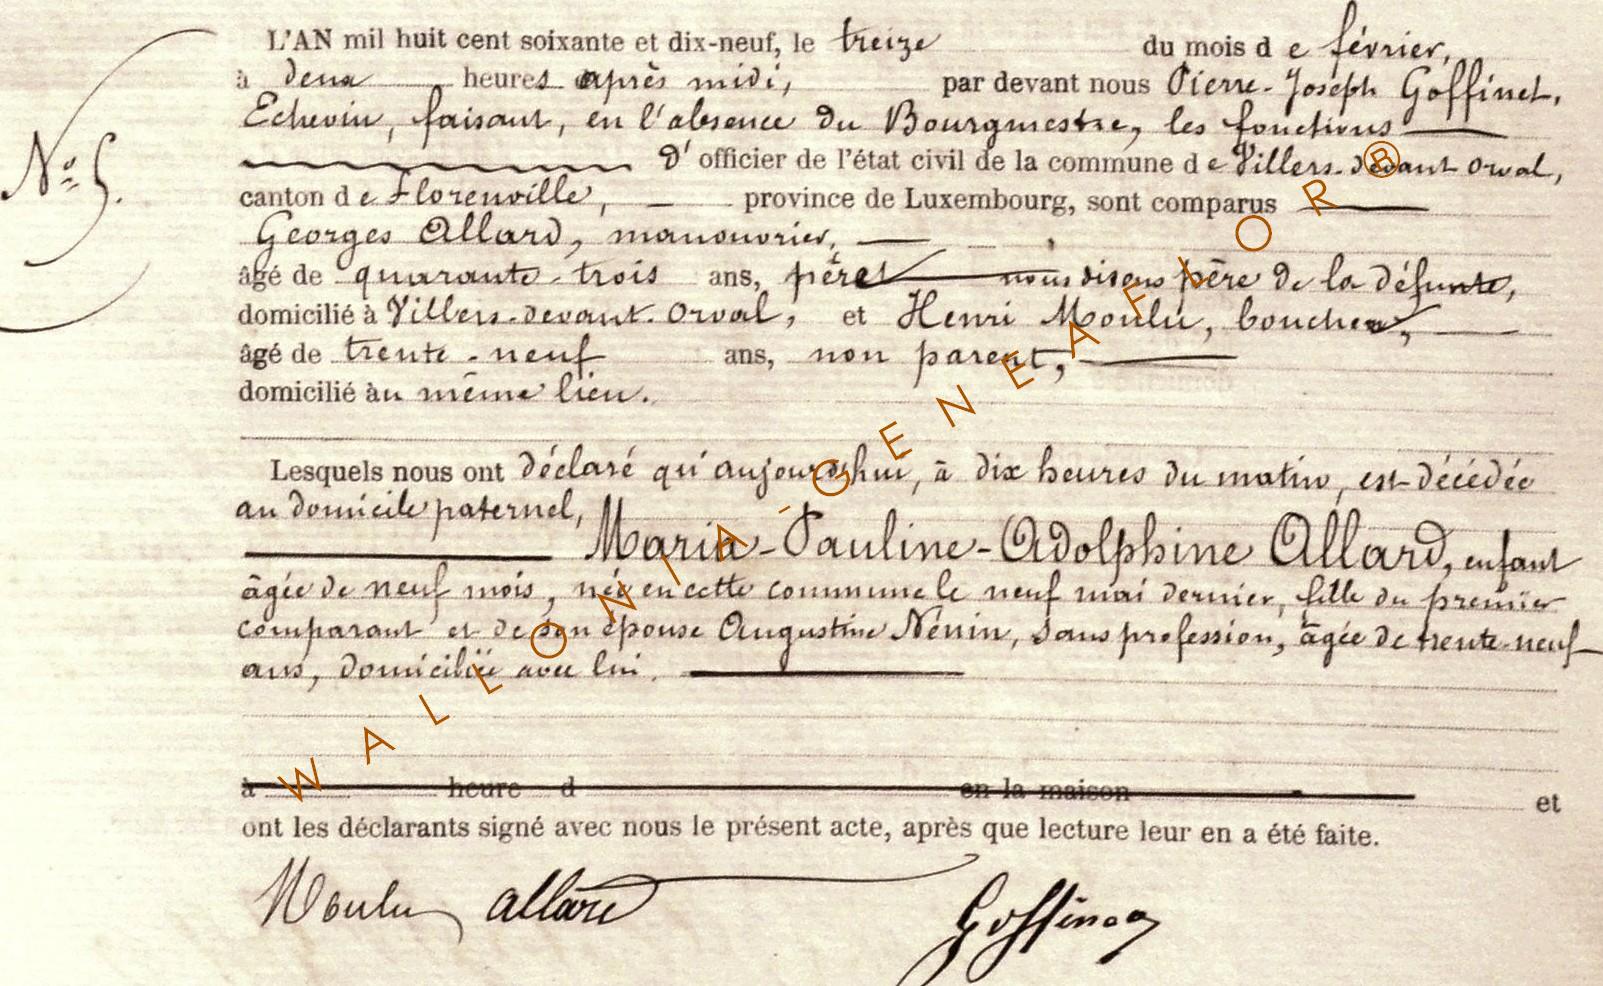 L'AN mil huit cent soixante et dix-neuf, le treize du mois de février,
à deux heures après midi, par devant nous Pierre-Joseph Goffinet,
Echevin, faisant, en l'absence du Bourgmestre, les fonctions
N° 5. d'officier de l'état civil de la commune de Villers-devant Orval,
canton de Florenville, province de Luxembourg, sont comparus
Georges Allard, manouvrier,
âgé de quarante-trois ans, père nous disons père de la défunte,
domicilié à Villers-devant-Orval, et Henri Moulu, boucher,
âgé de trente-neuf ans, non parent,
domicilié au même lieu.
Lesquels nous ont déclaré qu'aujourd'hui, à dix heures du matin, est décédée
au domicile paternel,
Maria-Pauline-Adolphine Allard, enfant
âgée de neuf mois, née en cette commune le neuf mai dernier, fille du premier
comparant et de son épouse Augustine Nénin, sans profession, âgée de trente-neuf
ans, domiciliée avec lui.
à heure d en la maison et
ont les déclarants signé avec nous le présent acte, après que lecture leur en a été faite.
Moulu Allard Goffinet
WALLONIA-GENEAFLOR®